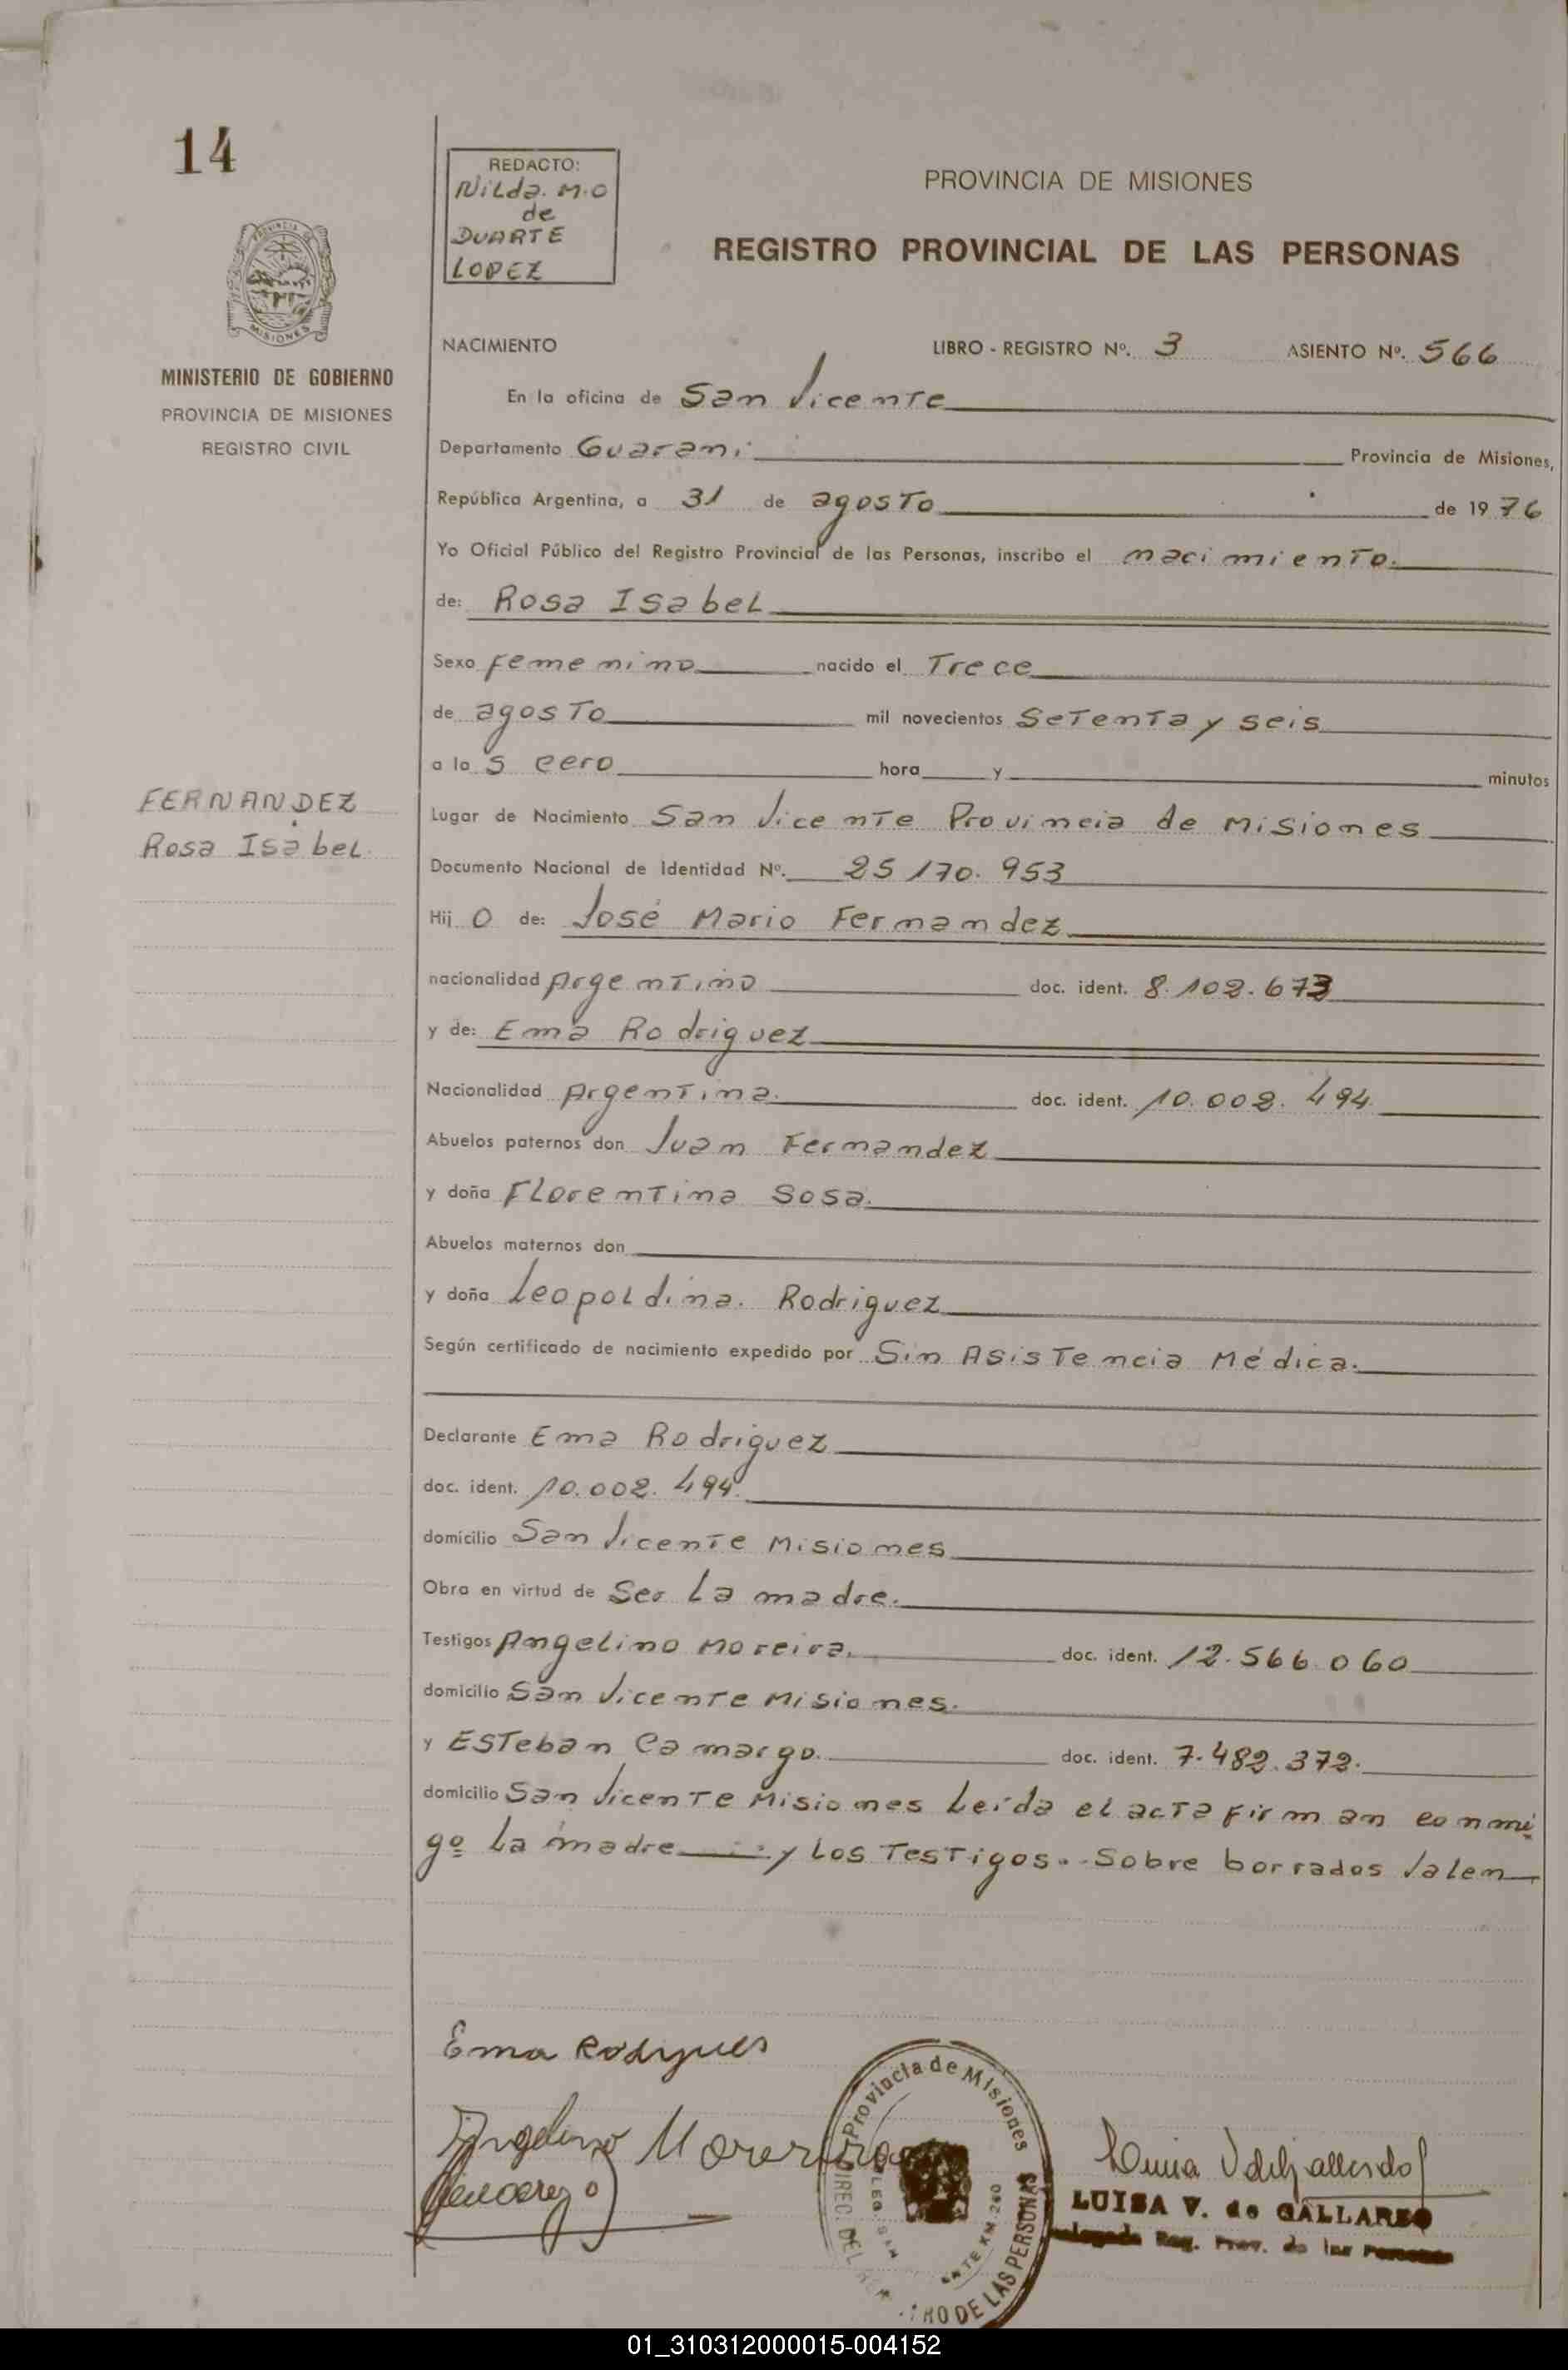 14
REDACTO:
Nilda. M.O
de
DUARTE
LOPEZ
PROVINCIA DE MISIONES
REGISTRO PROVINCIAL DE LAS PERSONAS
MISIONES
MINISTERIO DE GOBIERNO
PROVINCIA DE MISIONES
REGISTRO CIVIL
NACIMIENTO LIBRO - REGISTRO Nº. 3 ASIENTO Nº. 566
En la oficina de San Vicente
Departamento Guarani Provincia de Misiones,
República Argentina, a 31 de agosto de 1976
Yo Oficial Público del Registro Provincial de las Personas, inscribo el nacimiento.
de: Rosa Isabel
Sexo femenino nacido el Trece
de agosto mil novecientos Setenta y seis
a las cero hora y minutos
FERNANDEZ
Rosa Isabel.
Lugar de Nacimiento San Vicente Provincia de Misiones
Documento Nacional de Identidad Nº. 25 170. 953
Hijo de: José Mario Fernandez
nacionalidad Argentino doc. ident. 8.102.673
y de: Ema Rodriguez
Nacionalidad Argentina. doc. ident. 10.002.494
Abuelos paternos don Juan Fernandez
y doña Florentina Sosa.
Abuelos maternos don
y doña Leopoldina. Rodriguez
Según certificado de nacimiento expedido por Sin Asistencia Médica.
Declarante Ema Rodriguez
doc. ident. 10.002.494.
domicilio San Vicente Misiones
Obra en virtud de Ser La madre.
Testigos Angelino Moreira. doc. ident. 12.566.060
domicilio San Vicente Misiones.
y Esteban Camargo. doc. ident. 7.482.372.
domicilio San Vicente Misiones Leída el acta firman conmi
gº La madre y los Testigos. Sobre borrados Valen
Ema Rodrigues
Angelino Moreira
Provincia de Misiones
DIREC. DEL
TRO DE LAS PERSONAS
NTE KM. 260
LUISA V. de GALLARDO
Delegada Reg. Prov. de las Personas
01_310312000015-004152